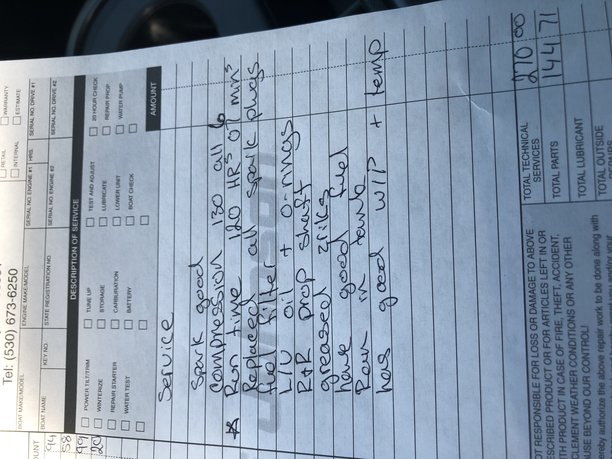 Tel: (530) 673-6250
RETAIL
WARRANTY
INTERNAL
ESTIMATE
BOAT MAKE/MODEL
ENGINE MAKE/MODEL
SERIAL NO. ENGINE #1
HRS.
SERIAL NO. DRIVE #1
BOAT NAME
KEY NO.
STATE REGISTRATION NO.
SERIAL NO. ENGINE #2
SERIAL NO. DRIVE #2
94
58
99
20
DESCRIPTION OF SERVICE
POWER TILT/TRIM
TUNE UP
TEST AND ADJUST
20 HOUR CHECK
WINTERIZE
STORAGE
LUBRICATE
REPAIR PROP
REPAIR STARTER
CARBURATION
LOWER UNIT
WATER PUMP
WATER TEST
BATTERY
BOAT CHECK
AMOUNT
Service
Spark good
Compression 130 all 6
* Run time 120 HRS 07 mins
Replaced all spark plugs
fuel filter
L/U oil + O-rings
R+R prop shaft
greased zriks
have good fuel
Ran in tank
has good W/P + temp
Johnson
OT RESPONSIBLE FOR LOSS OR DAMAGE TO ABOVE
ESCRIBED PRODUCT OR FOR ARTICLES LEFT IN OR
ITH PRODUCT IN CASE OF FIRE, THEFT, ACCIDENT,
CLEMENT WEATHER CONDITIONS OR ANY OTHER
AUSE BEYOND OUR CONTROL!
hereby authorize the above repair work to be done along with
TOTAL TECHNICAL SERVICES 270 00
TOTAL PARTS 144 71
TOTAL LUBRICANT
TOTAL OUTSIDE